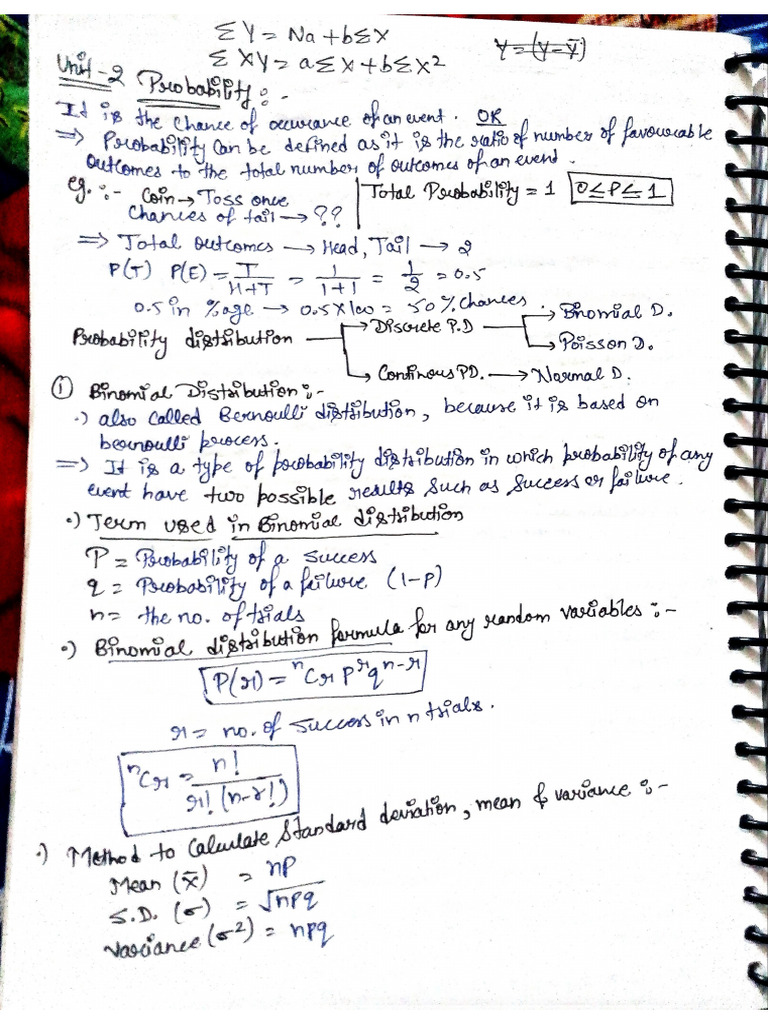 ΣY = Na + bΣX
y = (y - ȳ)
ΣXY = aΣX + bΣX²
Unit-2 Probability :-
It is the chance of occurance of an event. OR
⇒ Probability can be defined as it is the ratio of number of favourable
outcomes to the total number of outcomes of an event.
eg. :- Coin → Toss once
Chances of tail → ??
Total Probability = 1 0 ≤ P ≤ 1
⇒ Total outcomes → Head, Tail → 2
P(T) P(E) = T/H+T = 1/1+1 = 1/2 = 0.5
0.5 in %age → 0.5 × 100 = 50% Chances.
Probability distribution → Discrete P.D → Binomial D.
→ Poisson D.
→ Continous PD. → Normal D.
① Binomial Distribution :-
•) also called Bernoulli distribution, because it is based on
bernoulli process.
⇒ It is a type of probability distribution in which probability of any
event have two possible results such as success or failure.
•) Term used in Binomial distribution
P = Probability of a success
q = Probability of a failure (1-P)
n = the no. of trials
•) Binomial distribution formula for any random variables :-
P(r) = ⁿCr pʳ qⁿ⁻ʳ
r = no. of success in n trials.
ⁿCr = n! / r! (n-r!)
•) Method to Calculate Standard deviation, mean & variance :-
Mean (x̄) = np
S.D. (σ) = √npq
Variance (σ²) = npq